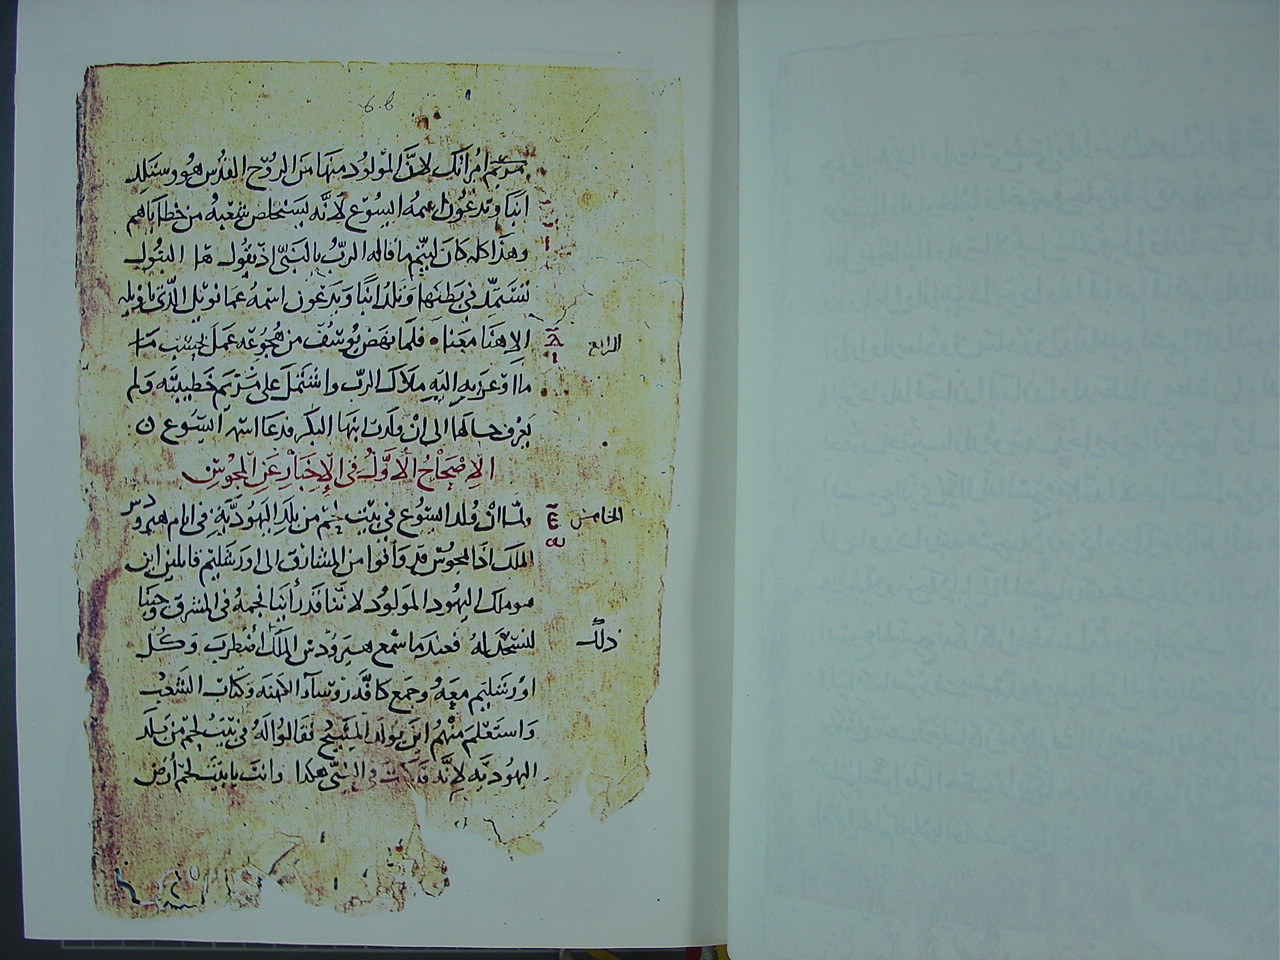 6 b
مريم امراتك لان المولود منها من الروح القدس هو وستلد
ابنا وتدعون اسمه ايسوع لانه يستخلص شعبه من خطاياهم
وهذا كله كان ليتم ما قاله الرب بالنبي اذ يقول ها البتول
تشتمل في بطنها وتلد ابنا ويدعون اسمه عمانويل الذي تاويله
الاهنا معنا • فلما نهض يوسف من هجوعه عمل بحسب ما
الرابع
ا
ما اوعز به اليه ملاك الرب واشتمل على مريم خطيبته ولم
يعرف حالها الى ان ولدت ابنها البكر فدعا اسمه ايسوع
الاصحاح الاول في الاخبار عن المجوس
ولما ان ولد ايسوع في بيت لحم من بلد اليهودية في ايام هيرودس
الخامس
الملك اذا المجوس قد وافوا من المشارق الى اورشليم قايلين اين
هو ملك اليهود المولود لاننا قد راينا نجمه في المشرق وجينا
لنسجد له فعندما سمع هيرودس الملك ذلك اضطرب وكل
اورشليم معه وجمع كافة روسا الكهنة وكتاب الشعب
واستعلم منهم اين يولد المسيح فقالوا له في بيت لحم من بلد
اليهودية لانه قد كتب في النبي هكذا وانت يا بيت لحم ارض